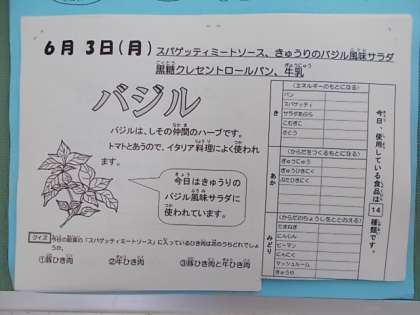 6月 3日(月) スパゲッティミートソース、きゅうりのバジル風味サラダ
黒糖クレセントロールパン、牛乳
バジル
バジルは、しその仲間のハーブです。
トマトとあうので、イタリア料理によく使われ
ます。
今日はきゅうりの
バジル風味サラダに
使われています。
クイズ 今日の給食の「スパゲッティミートソース」に入っているひき肉は次のうちどれでしょ
うか。
①豚ひき肉 ②牛ひき肉 ③豚ひき肉と牛ひき肉
今日、使用している食品は 14 種類です。
き
(エネルギーのもとになる)
パン
スパゲッティ
サラダあぶら
こむぎこ
さとう
あか
(からだをつくるもとになる)
ぎゅうにゅう
ぎゅうひきにく
ぶたひきにく
みどり
(からだのちょうしをととのえる)
たまねぎ
にんじん
ピーマン
にんにく
マッシュルーム
きゅうり